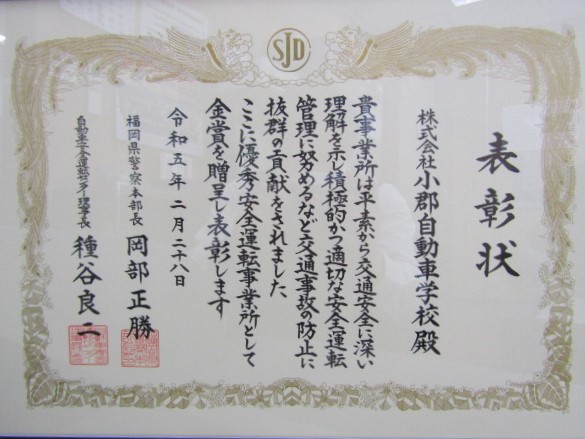 SJD
表彰状
株式会社小郡自動車学校殿
貴事業所は平素から交通安全に深い
理解を示し積極的かつ適切な安全運転
管理に努めるなど交通事故の防止に
抜群の貢献をされました
ここに優秀安全運転事業所として
金賞を贈呈し表彰します
令和五年二月二十八日
福岡県警察本部長 岡部正勝
自動車安全運転センター理事長 種谷良二